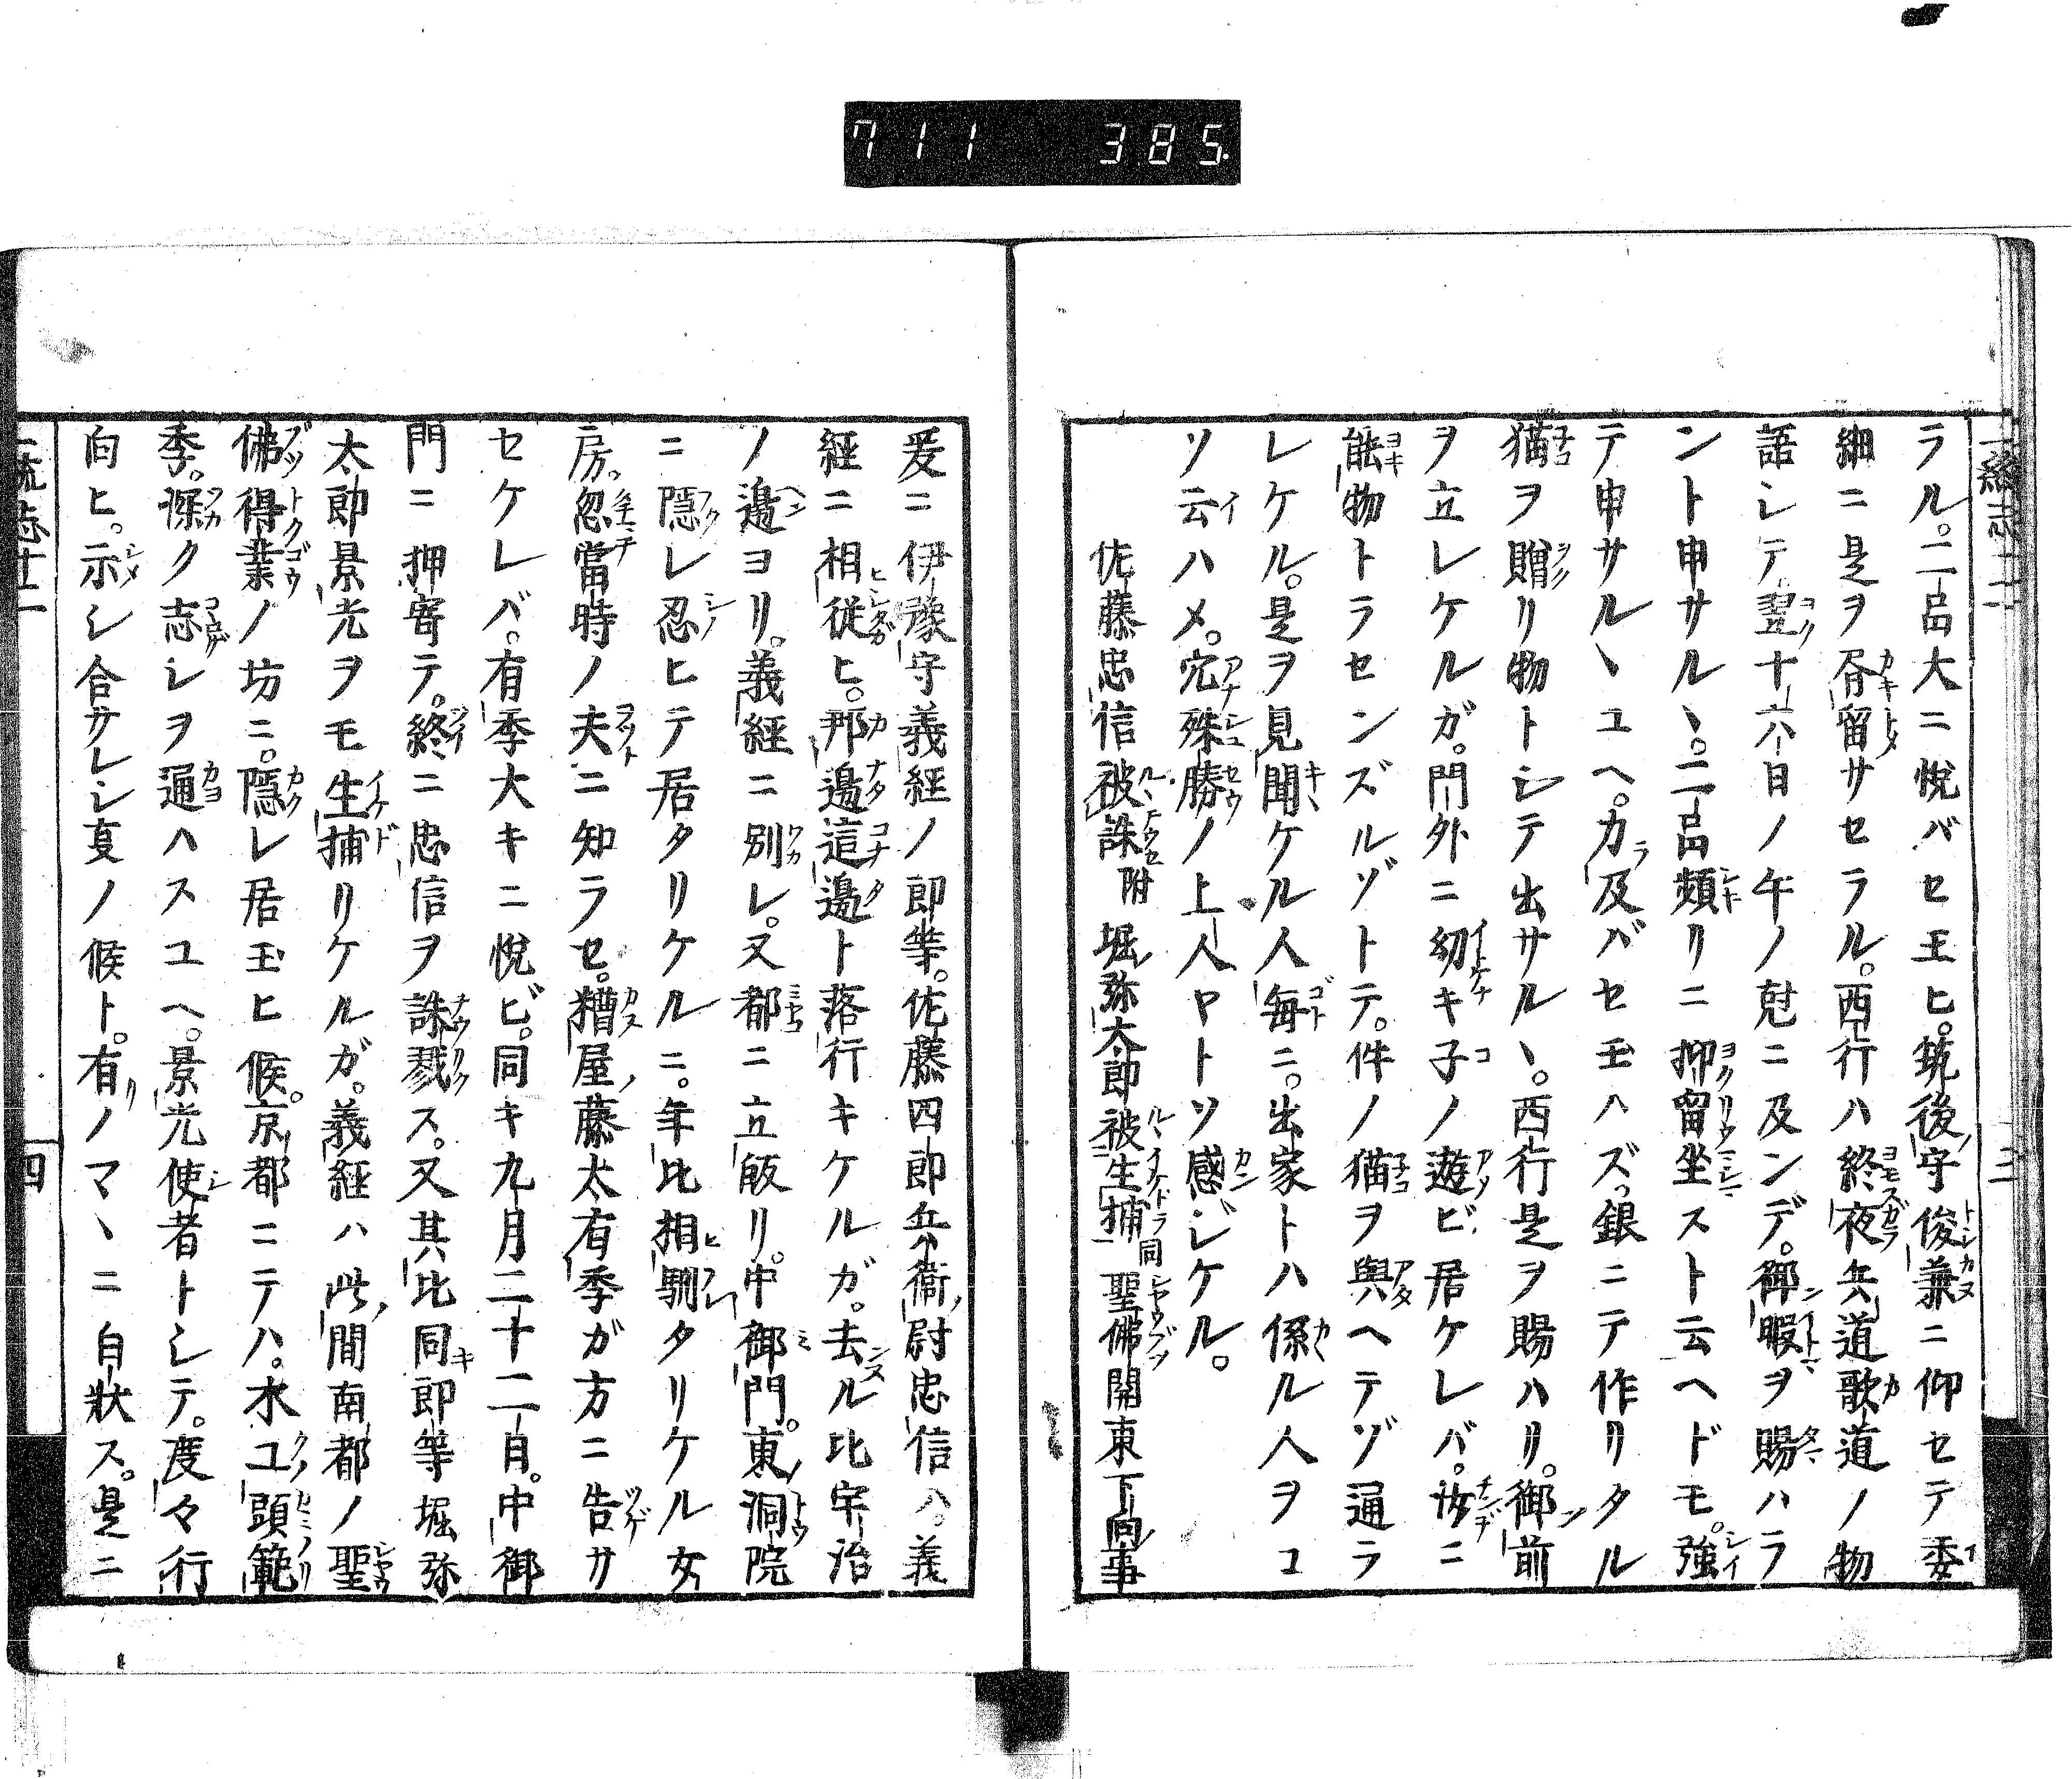 711 385
ラル。二品大ニ悦バセ玉ヒ。筑後守俊兼ニ仰セテ委
細ニ是ヲ脊留サセラル。西行ハ終夜兵道歌道ノ物
語シテ。翌十六日ノ午ノ尅ニ及ンデ。御暇ヲ賜ハラ
ント申サル丶。二品頻リニ抑留坐スト云ヘドモ。強
テ申サル丶ユヘ。力及バセ玉ハズ。銀ニテ作リタル
猫ヲ贈リ物トシテ出サル丶。西行是ヲ賜ハリ。御前
ヲ立レケルガ。門外ニ幼キ子ノ遊ビ居ケレバ。汝ニ
能物トラセンズルゾトテ。件ノ猫ヲ與ヘテゾ通ラ
レケル。是ヲ見聞ケル人毎ニ。出家トハ係ル人ヲコ
ソ云ハメ。穴殊勝ノ上人ヤトソ感ジケル。
佐藤忠信被誅附堀弥太郎被生捕同聖佛関東下向事
爰ニ伊豫守義経ノ郎等。佐藤四郎兵衛尉忠信ハ。義
経ニ相従ヒ。那邊這邊ト落行キケルガ。去ル比宇治
ノ邊ヨリ。義経ニ別レ。又都ニ立皈リ。中御門。東洞院
ニ隠レ忍ヒテ居タリケルニ。年比相馴タリケル女
房。忽當時ノ夫ニ知ラセ。糟屋藤太有季ガ方ニ告サ
セケレバ。有季大キニ悦ビ。同キ九月二十二日。中御
門ニ押寄テ。終ニ忠信ヲ誅戮ス。又其比同郎等堀弥
太郎景光ヲモ生捕リケルガ。義経ハ此間南都ノ聖
佛得業ノ坊ニ。隠レ居玉ヒ候。京都ニテハ。木工頭範
季。深ク志シヲ通ハスユヘ。景光使者トシテ。度々行
向ヒ。示シ合サレシ事ノ候ト。有ノマ丶ニ自状ス。是ニ
四